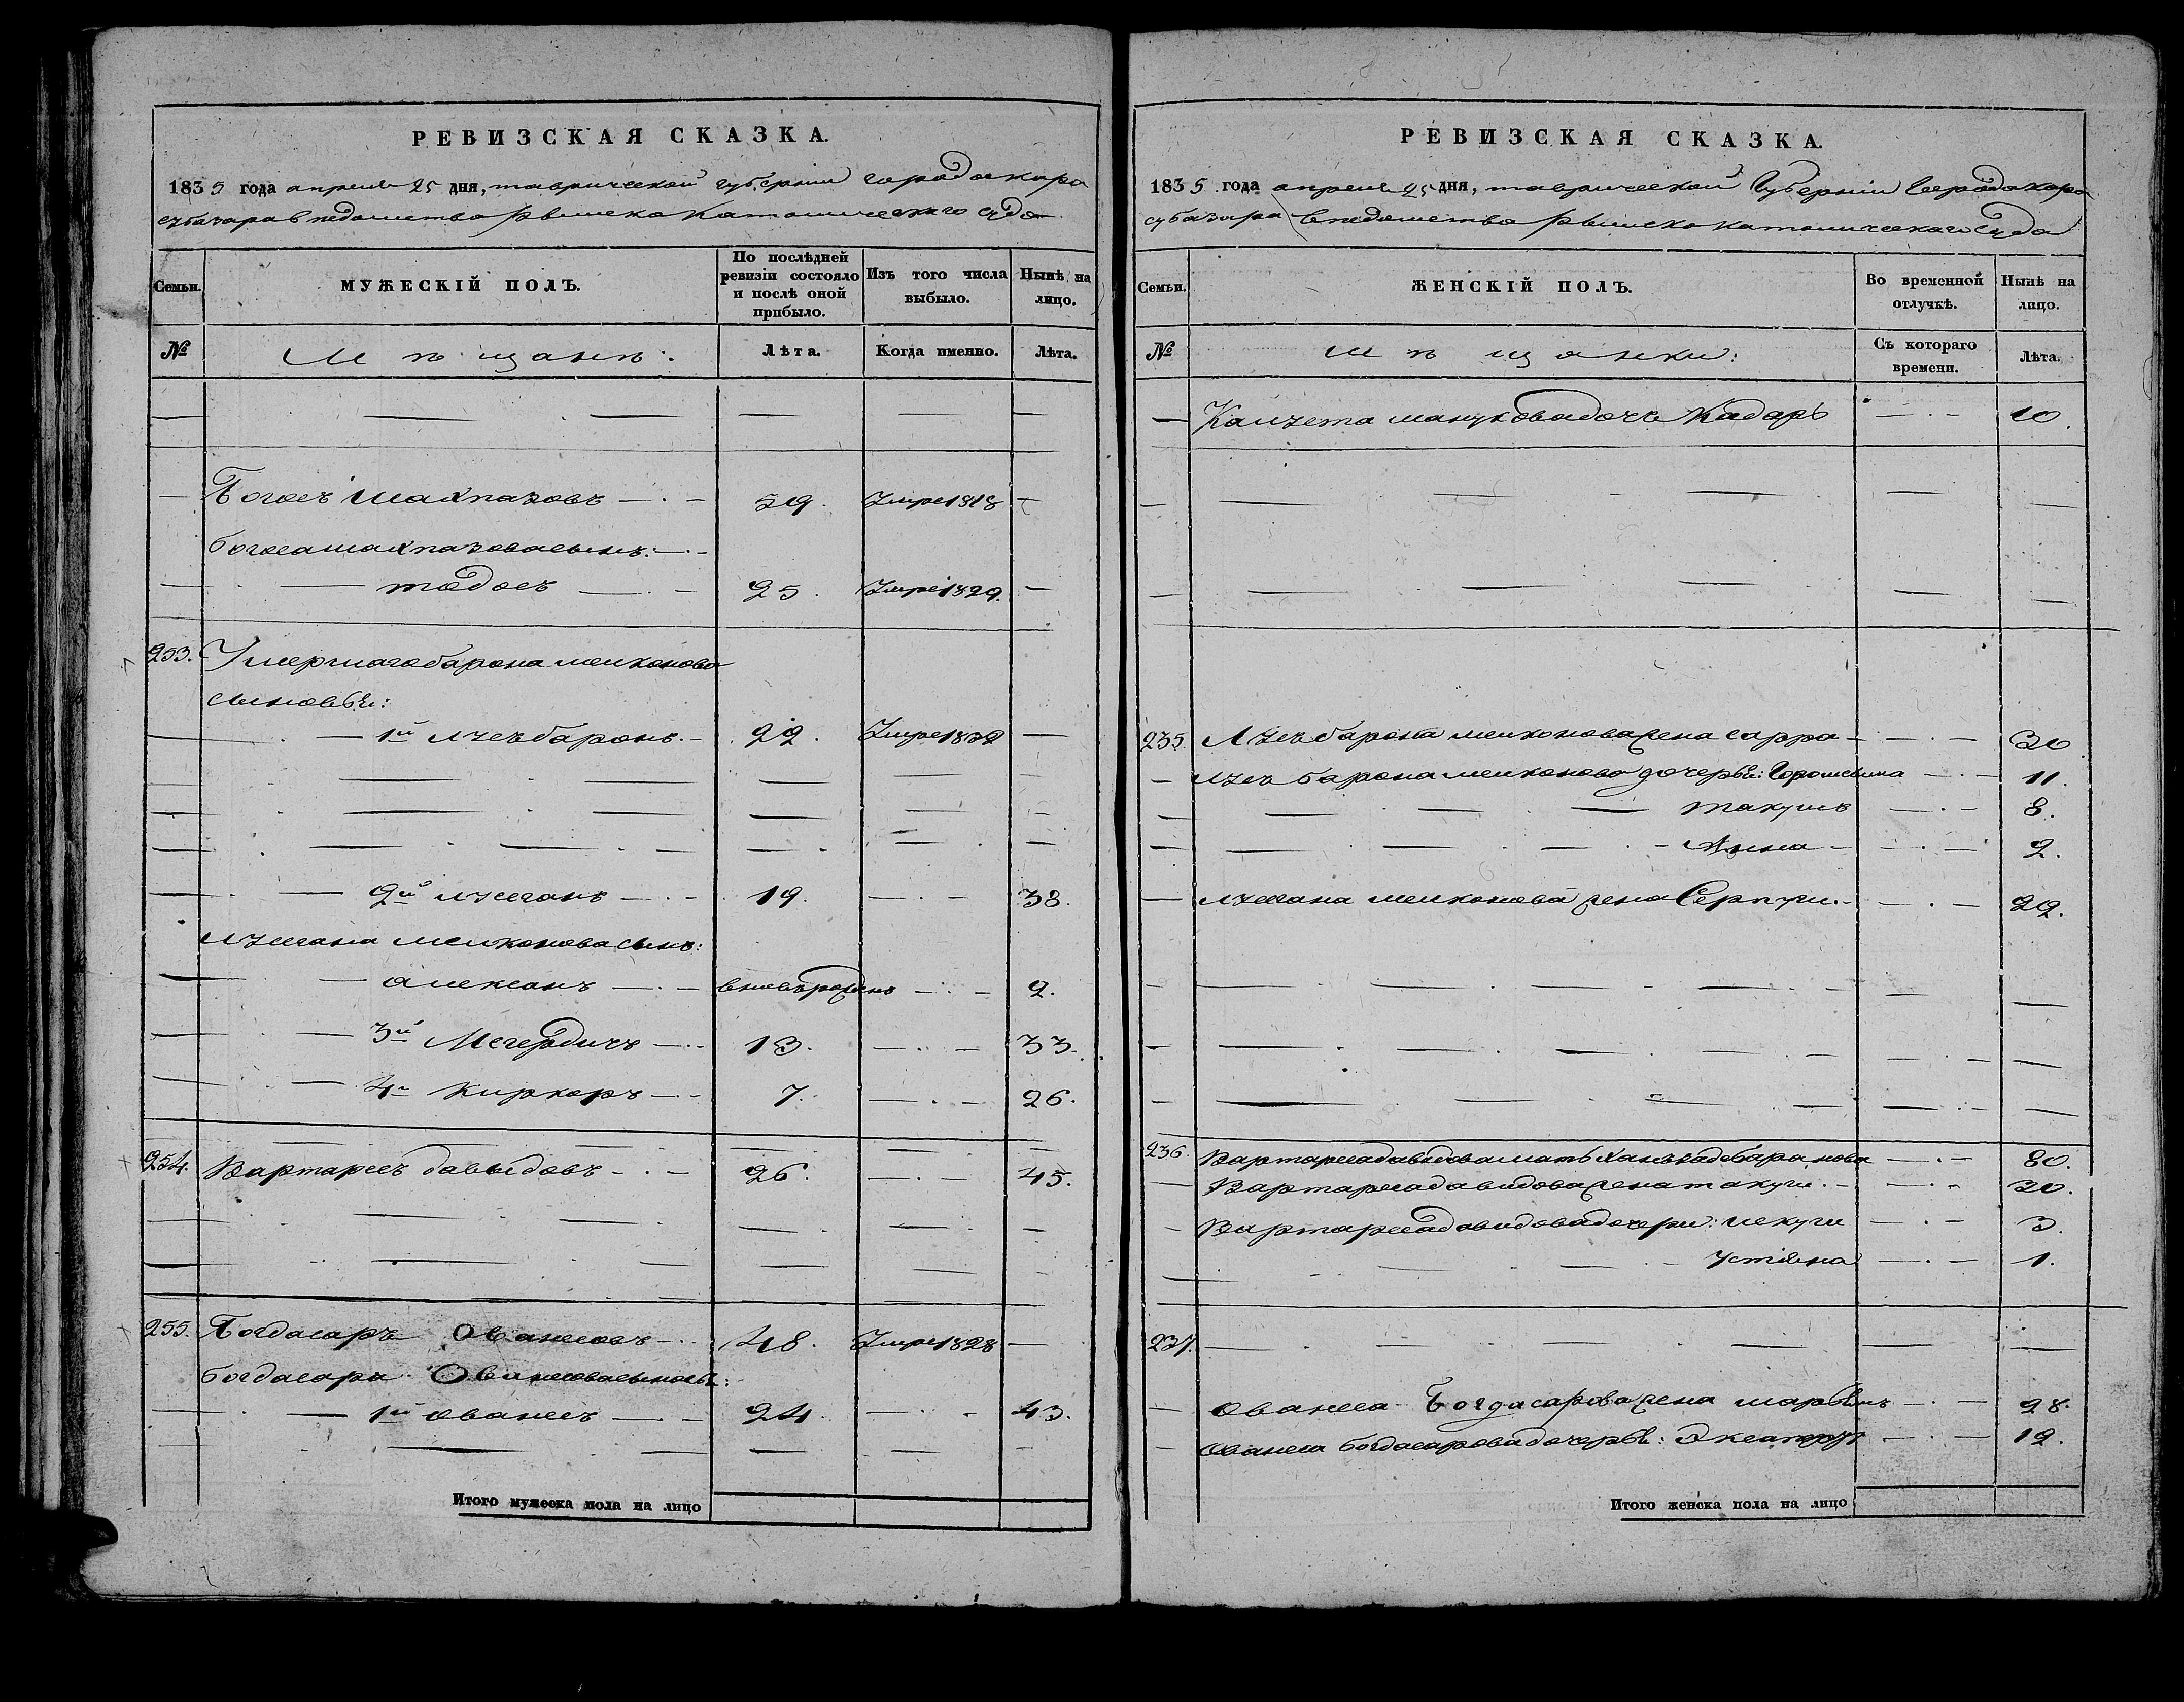 РЕВИЗСКАЯ СКАЗКА.
1835 года апреля 25 дня, таврической губернии города кара
субазара в ведомства Римско Католического суда
Семьи.
МУЖЕСКІЙ ПОЛЪ.
По послѣдней ревизіи состояло и послѣ оной прибыло.
Изъ того числа выбыло.
Нынѣ на лицо.
№
Мѣщанѣ:
Лѣта.
Когда именно.
Лѣта.
Богосъ Шахпазовъ 59. Умре 1818
богоса шахпазова сынъ:
тодосъ 25. Умре 1829.
253. Умершаго барона мелконова
сыновьи:
1й баронъ 22. Умре 1832
2й 19. 38.
мелконова сынъ:
алексанъ вновьрожденъ 2.
3й Мегердичъ 13. 33.
4й Киркоръ 7. 26.
254. Вартаресъ давыдовъ 26. 45.
255. Богдасаръ Ованесовъ 48. Умре 1828
богдасара Ованесова сыновьи:
1й ованесъ 24. 43.
Итого мужеска пола на лицо
РЕВИЗСКАЯ СКАЗКА.
1835 года апреля 25 дня, таврической Губерніи Города кара
субазара в ведомства Римско католическаго Суда
Семьи.
ЖЕНСКІЙ ПОЛЪ.
Во временной отлучкѣ.
Нынѣ на лицо.
№
Мѣщанки:
Съ котораго времени.
Лѣта.
манукова дочь Кадаръ 10.
235. барона мелконова жена сарра 30
барона мелконова дочерьи: 11.
такушъ 8.
Анна 2.
мелконова жена Серпуги. 29.
236. Вартареса давыдова мать 80.
Вартареса давидова жена такуги. 30.
Вартареса давидова дочери: 3.
Устіяна 1.
237.
Ованеса Богдасарова жена 28.
Ованеса богдасарова дочерьи: 12.
Итого женска пола на лицо